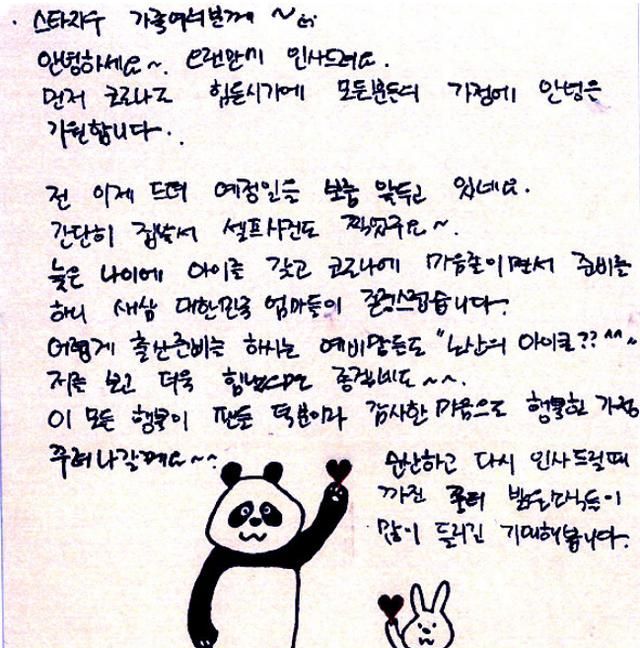 · 스타자수 가족여러분께 ~
안녕하세요~. 오랜만에 인사드려요.
먼저 코로나로 힘든시기에 모든분들의 가정에 안녕을
기원합니다.
전 이제 드뎌 예정일을 보름 앞두고 있네요.
간단히 집에서 셀프사진도 찍었구요~.
늦은 나이에 아이를 갖고 코로나에 마음졸이면서 준비를
하니 새삼 대한민국 엄마들이 존경스럽습니다.
어렵게 출산준비를 하시는 예비맘들도 "노산의 아이콘?? ^^"
저를 보고 더욱 힘냈으면 좋겠네요~~.
이 모든 행복이 팬분 덕분이라 감사한 마음으로 행복한 가정
꾸려나갈께요~~
순산하고 다시 인사드릴때
까진 좀더 밝은소식들이
많이 들리길 기대해봅니다.